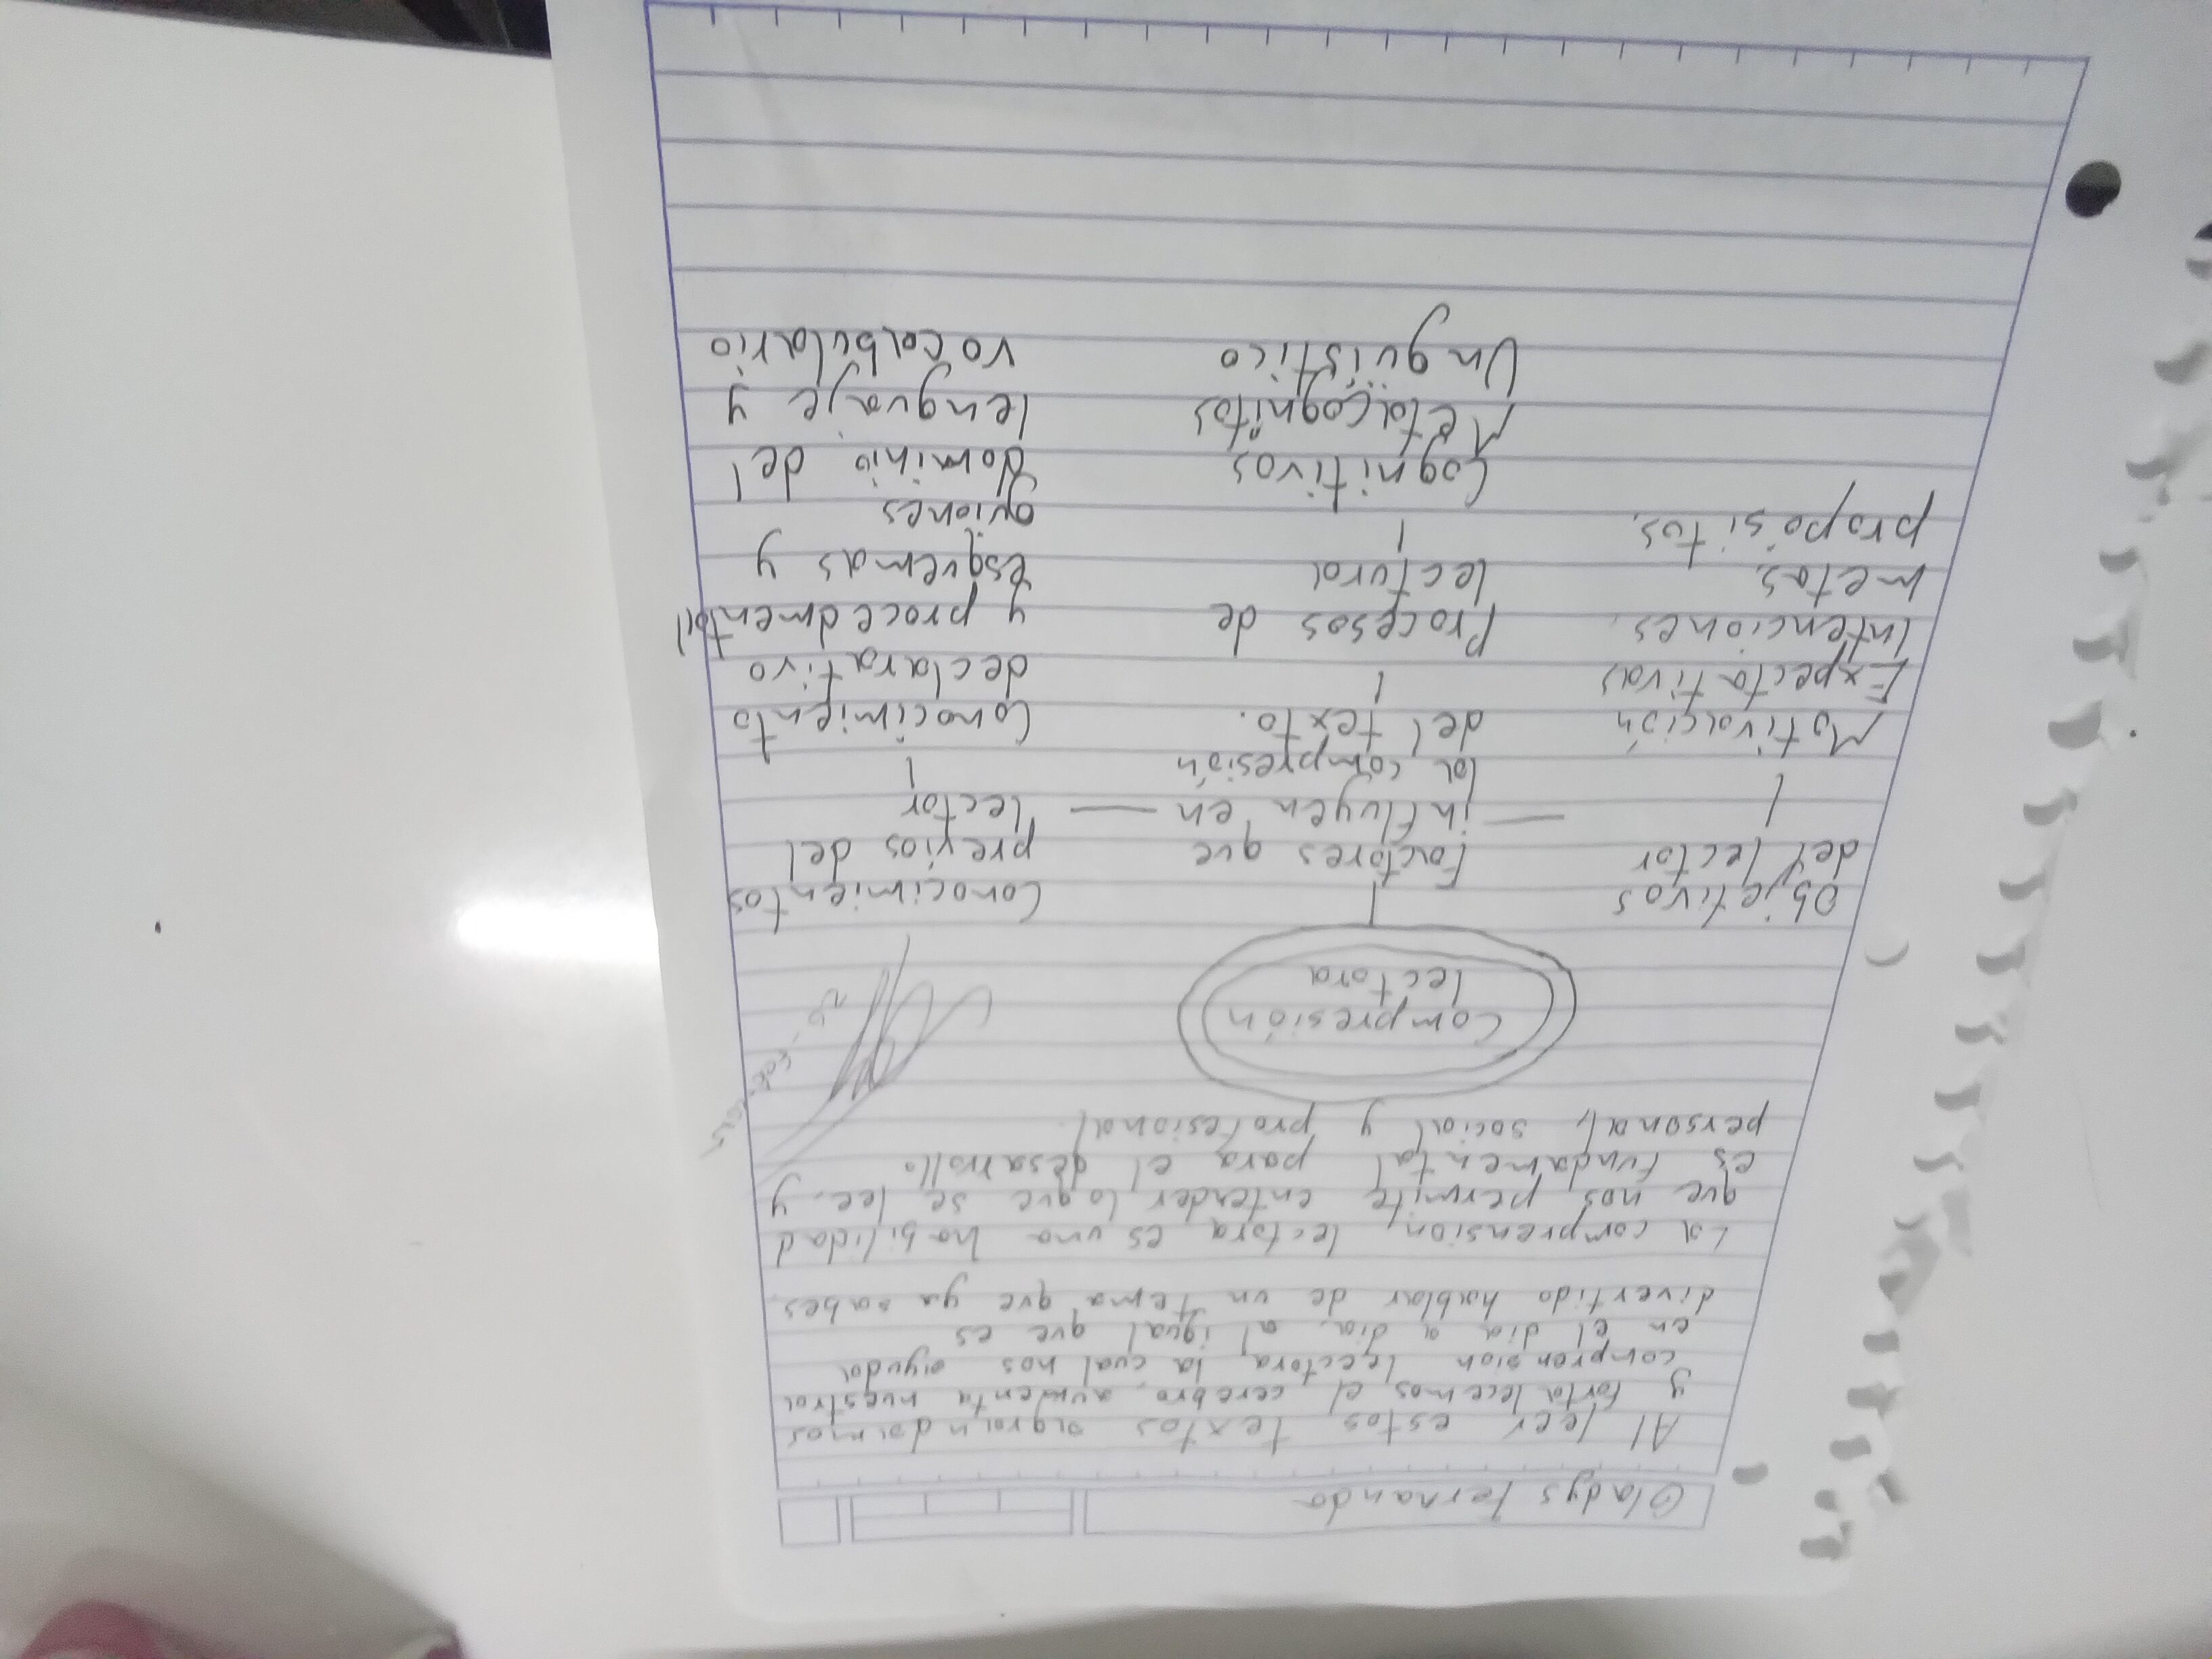 Gladys Fernanda
Al leer estos textos agrandamos
y fortalecemos el cerebro, aumenta nuestra
comprension lectora, la cual nos ayuda
en el dia a dia, al igual que es
divertido hablar de un tema que ya sabes.
La comprension, lectora es una habilidad
que nos permite entender lo que se lee, y
es fundamental para el desarrollo
personal, social y profesional.
Compresión
lectora
Objetivos
del lector
Motivación
Expectativas
Intenciones,
metas,
propósitos.
Factores que
influyen en
la compresión
del texto.
Procesos de
lectura
Cognitivos
Metacognitos
Linguistico
Conocimientos
previos del
lector
Conocimiento
declarativo
y procedmental
Esquemas y
guiones
dominio del
lenguaje y
vocabulario